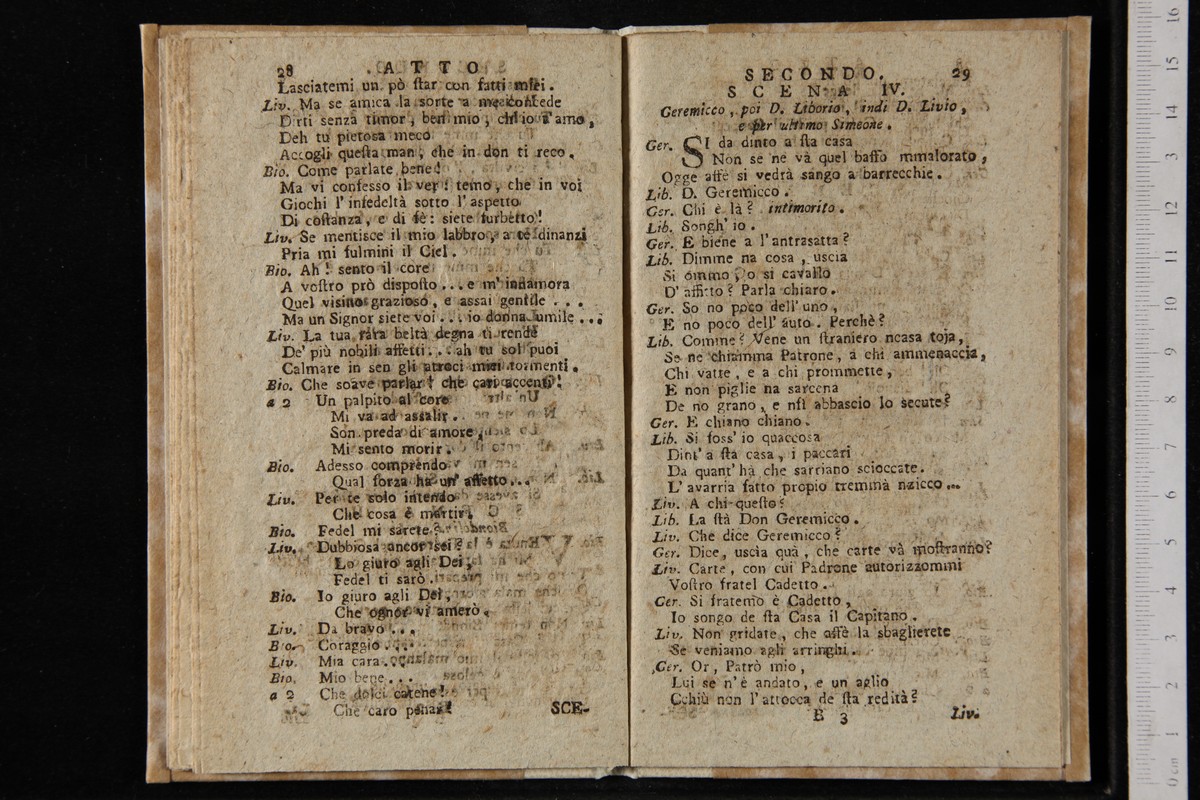 28 . A T T O
Lasciatemi un pò ſtar con fatti miei .
Liv. Ma se amica la sorte a me concede
Dirti senza timor , ben mio , ch' io t' amo ,
Deh tu pietosa meco
Accogli queſta man , che in don ti reco .
Bio. Come parlate bene !
Ma vi confesso il ver : temo , che in voi
Giochi l' infedeltà sotto l' aspetto
Di coſtanza , e di fè : siete furbetto !
Liv. Se mentisce il mio labbro , a te dinanzi
Pria mi fulmini il Ciel .
Bio. Ah ! sento il core
A voſtro prò dispoſto ... e m' innamora
Quel visino grazioso , e assai gentile . . .
Ma un Signor siete voi . . . io donna umile . . .
Liv. La tua rara beltà degna ti rende
De' più nobili affetti . . . ah tu sol puoi
Calmare in sen gli atroci miei tormenti .
Bio. Che soave parlar ! che cari accenti !
a 2 Un palpito al core
Mi va ad assalir .
Son preda di amore ,
Mi sento morir .
Bio. Adesso comprendo
Qual forza ha un' affetto . . .
Liv. Per te solo intendo
Che cosa è martir .
Bio. Fedel mi sarete ?
Liv. Dubbiosa ancor sei ?
Lo giuro agli Dei ,
Fedel ti sarò .
Bio. Io giuro agli Dei ,
Che ognor vi amerò .
Liv. Da bravo . . .
Bio. Coraggio . . .
Liv. Mia cara . . .
Bio. Mio bene . . .
a 2 Che dolci catene !
Che caro penar !
SCE-
SECONDO. 29
S C E N A IV.
Geremicco , poi D. Liborio , indi D. Livio ,
e per ultimo Simeone .
Ger. SI da dinto a ſta casa
Non se ne và quel baffo mmalorato ,
Ogge affè si vedrà sango a barrecchie .
Lib. D. Geremicco .
Ger. Chi è là ? intimorito .
Lib. Songh' io .
Ger. E biene a l' antrasatta ?
Lib. Dimme na cosa , uscia
Si ommo , o si cavallo
D' affitto ? Parla chiaro .
Ger. So no poco dell' uno ,
E no poco dell' auto . Perchè ?
Lib. Comme ? Vene un ſtraniero ncasa toja ,
Se ne chiamma Patrone , a chi ammenaccia ,
Chi vatte , e a chi prommette ,
E non piglie na sarcena
De no grano , e nfi abbascio lo secute ?
Ger. E chiano chiano .
Lib. Si foss' io quaccosa
Dint' a ſta casa , i paccari
Da quant' hà che sarriano scioccate .
L' avarria fatto propio tremmà nzicco ...
Liv. A chi queſto ?
Lib. La ſtà Don Geremicco .
Liv. Che dice Geremicco ?
Ger. Dice , uscìa quà , che carte và moſtranno ?
Liv. Carte , con cui Padrone autorizzommi
Voſtro fratel Cadetto .
Ger. Si fratemo è Cadetto ,
Io songo de ſta Casa il Capitano .
Liv. Non gridate , che affè la sbaglierete
Se veniamo agli arringhi .
Ger. Or , Patrò mio ,
Lui se n' è andato , e un aglio
Cchiù non l' attocca de ſta redità ?
E 3 Liv.
0 cm 1 2 3 4 5 6 7 8 9 10 11 12 13 14 15 16